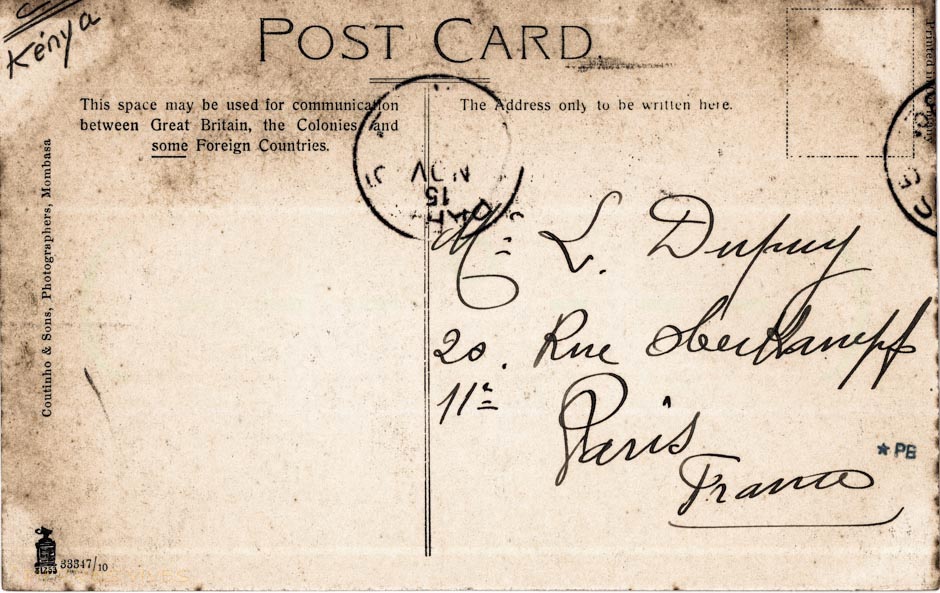 Kénya
POST CARD.
This space may be used for communication
between Great Britain, the Colonies, and
some Foreign Countries.
The Address only to be written here.
Printed in
Coutinho & Sons, Photographers, Mombasa
NOV
15
Mr L. Dupuy
20. Rue Oberkampf
11e
Paris
France
* PB
33347/10